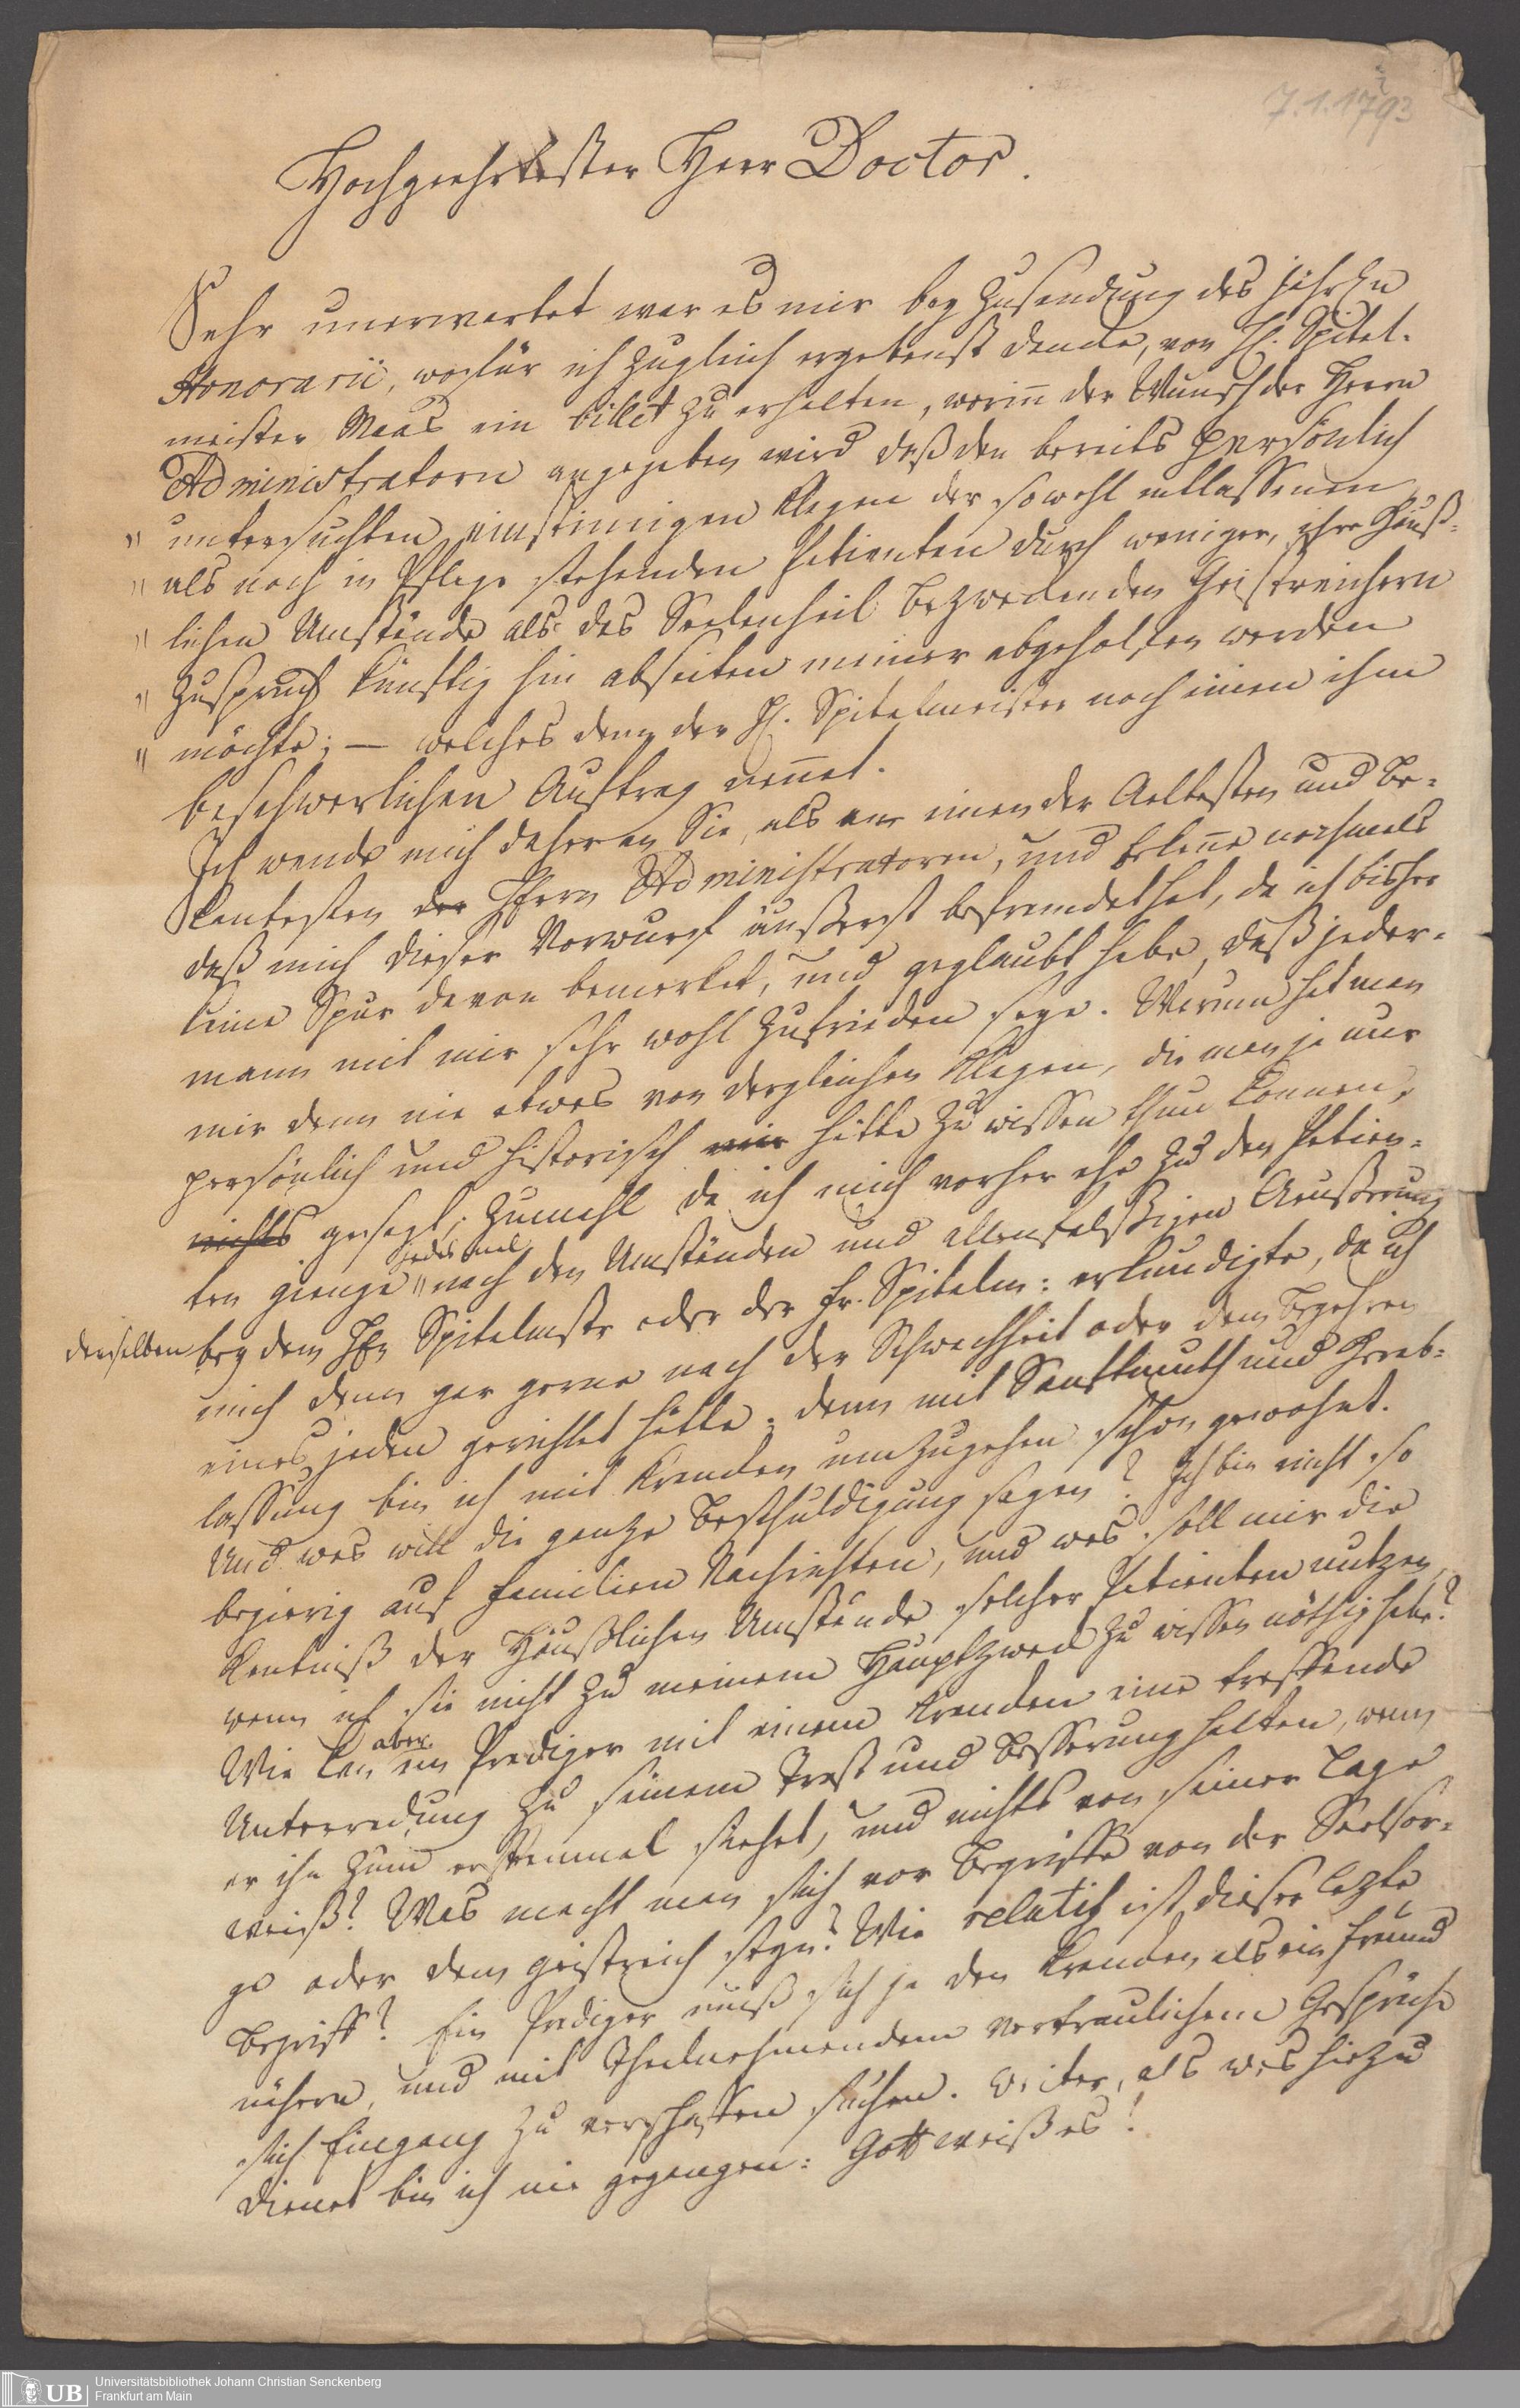 7.1.1793
Hochgeehrtester Herr Doctor.
Sehr unerwartet war es mir bey Zusendung des jährln
Honorarii, wofür ich zugleich ergebenst dancke, von H. Spital-
meister Maas ein billet zu erhalten, worin̄ der Wunsch der Herrn
Administratorn angegeben wird daß den bereits persönlich
" untersuchten einstimigen Klagen der sowohl entlassenen
" als noch in Pflege stehenden Patienten durch weniger, ihre Häuß-
" lichen Umstände als das Seelenheil bezweckenden Geistreichern
" Zuspruch künftig hin abseiten meiner abgeholfen werden
" möchte; — welches denn der H. Spitalmeister noch einen ihm
beschwerlichen Auftrag nen̄et.
Ich wende mich daher an Sie, als an einen der Aeltesten und Be-
kantesten der Herrn Administratoren, und bekene nochmals
daß mich dieser Vorwurf äußerst befremdet hat, da ich bisher
keine Spur davon bemerket, und geglaubt habe, daß jeder-
mann mit mir sehr wohl zufrieden seye. Warum hat man
mir denn nie etwas von dergleichen Klagen, die man ja nur
persönlich und historisch mir hätte zu wissen thun können,
nichts gesagt; zumahl da ich mich vorher ehe zu den Patien-
jedesmal
ten gienge " nach den Umständen und allenfalsigen Aeußerung
denselben bey dem Hn Spitalmstr oder der Fr. Spitalm: erkundigte, da ich
mich denn gar gerne nach der Schwachheit oder dem Begehren
eines jeden gerichtet hätte; denn mit Sanftmuth und Herab-
lassung bin ich mit Krancken umzugehen schon gewohnt.
Und was will die ganze Beschuldigung sagen? Ich bin nicht so
begierig auf Familien Nachrichten, und was soll mir die
Kentniß der Häußlichen Umstände solcher Patienten nutzen,
wenn ich sie nicht zu meinem Hauptzweck zu wissen nöthig habe?
aber
Wie kan ein Prediger mit einem Krancken eine treffende
Unterredung zu seinem Trost und Besserung halten, wenn
er ihn zum erstenmal siehet, und nichts von seiner Lage
weiß? Was macht man sich vor Begriffe von der Seelsor-
ge oder dem geistreich seyn? Wie relatif ist dieser lezte
Begriff? Ein Prediger muß sich ja den Krancken als ein Freund
nähern, und mit Theilnehmendem vertraulichem Gespräche
sich Eingang zu verschaffen suchen. Weiter, als was hiezu
dienet bin ich nie gegangen: Gott weiß es!
UB
Universitätsbibliothek Johann Christian Senckenberg
Frankfurt am Main